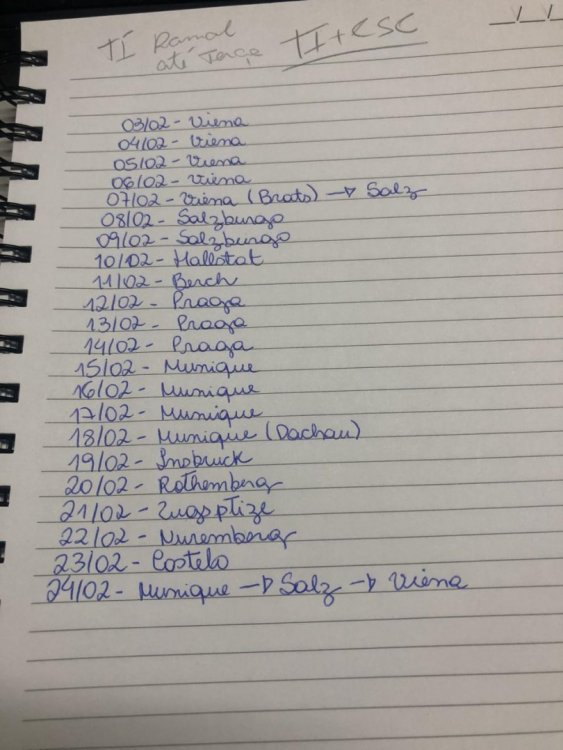 TI Ramal TI + CSC
até Terça
__/__/__
03/02 - Viena
04/02 - Viena
05/02 - Viena
06/02 - Viena
07/02 - Viena (Brats) → Salz
08/02 - Salzburgo
09/02 - Salzburgo
10/02 - Hallstat
11/02 - Berch
12/02 - Praga
13/02 - Praga
14/02 - Praga
15/02 - Munique
16/02 - Munique
17/02 - Munique
18/02 - Munique (Dachau)
19/02 - Insbruck
20/02 - Rothemberg
21/02 - Zugsptize
22/02 - Nuremberg
23/02 - Castelo
24/02 - Munique → Salz → Viena